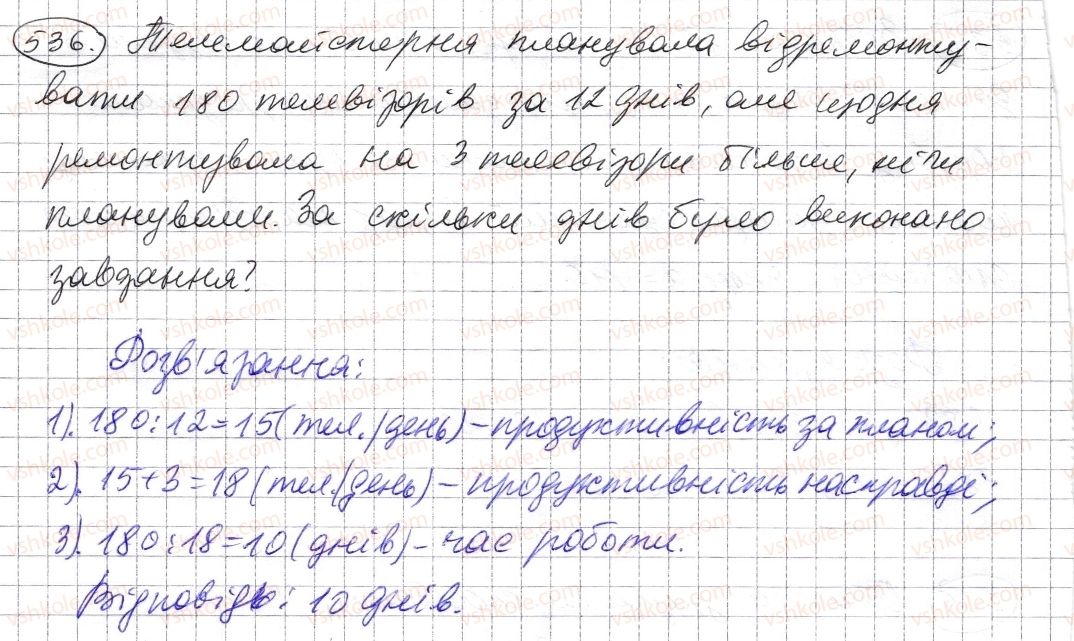 536. Телемайстерня планувала відремонту-
вати 180 телевізорів за 12 днів, але щодня
ремонтувала на 3 телевізори більше, ніж
планували. За скільки днів було виконано
завдання?
Розв'язання:
1). 180:12=15(тел./день) – продуктивність за планом;
2). 15+3=18 (тел./день) – продуктивність насправді;
3). 180:18=10(днів) – час роботи.
Відповідь: 10 днів.